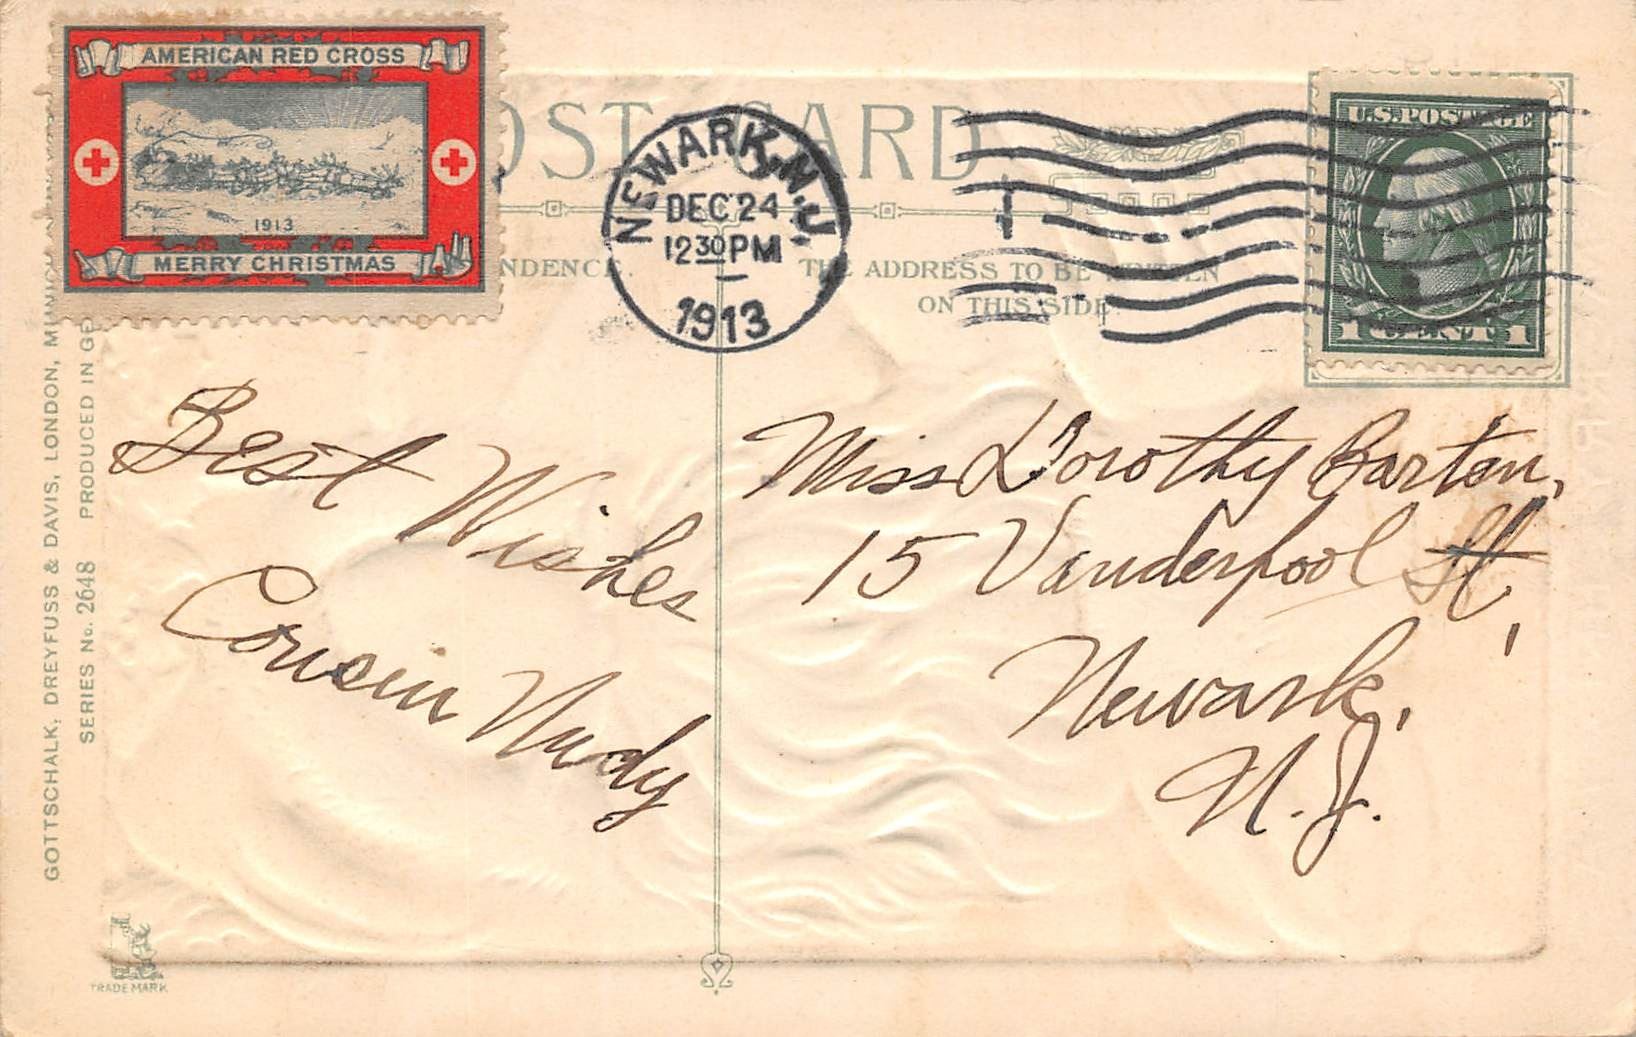 AMERICAN RED CROSS
1913
MERRY CHRISTMAS
OST CARD
NDENCE.
NEWARK, N.J.
DEC 24
12 30 PM
1913
THE ADDRESS TO BE WRITTEN
ON THIS SIDE.
U.S. POSTAGE
1 CENT 1
Best Wishes
Cousin
Miss Dorothy Barton,
15 Vanderpool St,
Newark,
N.J.
GOTTSCHALK, DREYFUSS & DAVIS, LONDON,
SERIES No. 2648 PRODUCED IN GE
TRADE MARK